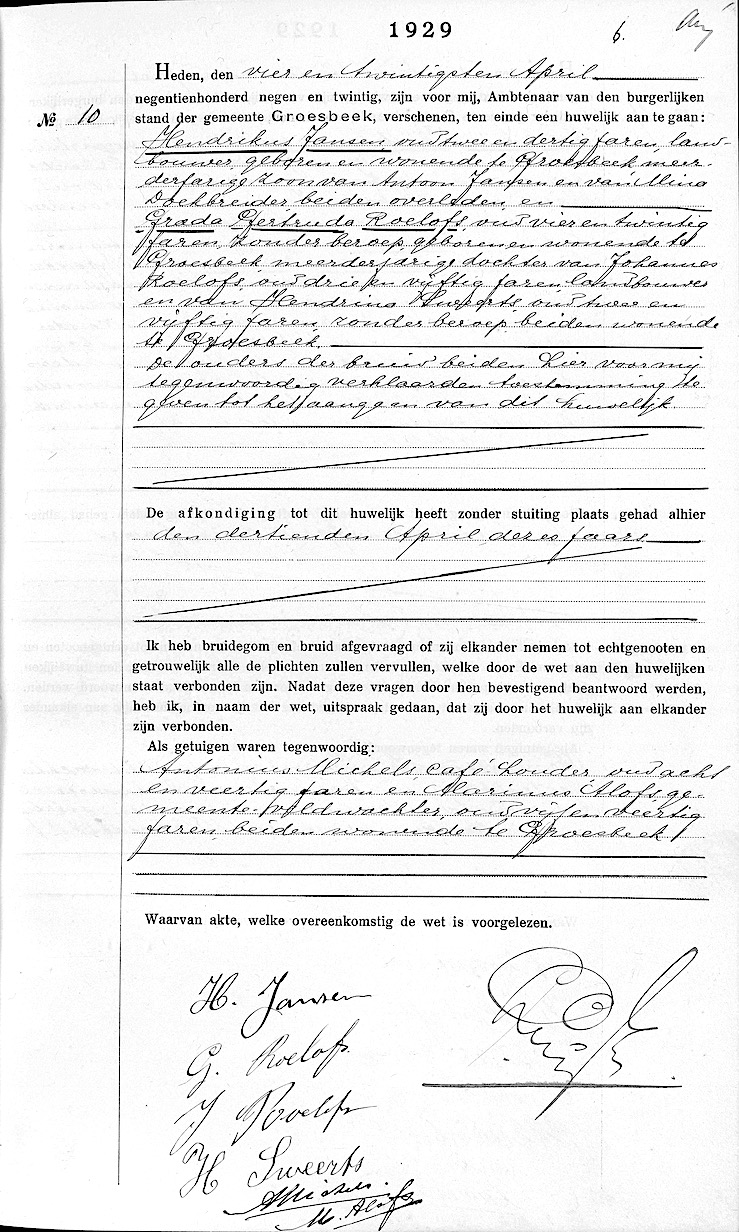 1929
6.
Heden, den vier en twintigsten April
negentienhonderd negen en twintig, zijn voor mij, Ambtenaar van den burgerlijken
№ 10 stand der gemeente Groesbeek, verschenen, ten einde een huwelijk aan te gaan:
Hendrikus Jansen, oud twee en dertig jaren, land-
bouwer, geboren en wonende te Groesbeek, meer-
derjarige zoon van Antoon Jansen en van Mina
beiden overleden, en
Grada Gertruda Roelofs, oud vier en twintig
jaren, zonder beroep, geboren en wonende te
Groesbeek, meerderjarige dochter van Johannes
Roelofs, oud drie en vijftig jaren, landbouwer
en van Hendrina Sweerts, oud twee en
vijftig jaren, zonder beroep, beiden wonende
te Groesbeek.
De ouders der bruid beiden hier voor mij
tegenwoordig verklaarden toestemming te
geven tot het aangaan van dit huwelijk.
De afkondiging tot dit huwelijk heeft zonder stuiting plaats gehad alhier
den dertienden April dezes jaars
Ik heb bruidegom en bruid afgevraagd of zij elkander nemen tot echtgenooten en
getrouwelijk alle de plichten zullen vervullen, welke door de wet aan den huwelijken
staat verbonden zijn. Nadat deze vragen door hen bevestigend beantwoord werden,
heb ik, in naam der wet, uitspraak gedaan, dat zij door het huwelijk aan elkander
zijn verbonden.
Als getuigen waren tegenwoordig:
Antonius Michels, caféhouder, oud acht
en veertig jaren en Marinus Alofs, ge-
meente-veldwachter, oud vijf en veertig
jaren, beiden wonende te Groesbeek
Waarvan akte, welke overeenkomstig de wet is voorgelezen.
H. Jansen
G. Roelofs
J Roelofs
H Sweerts
A Michels.
M. Alofs